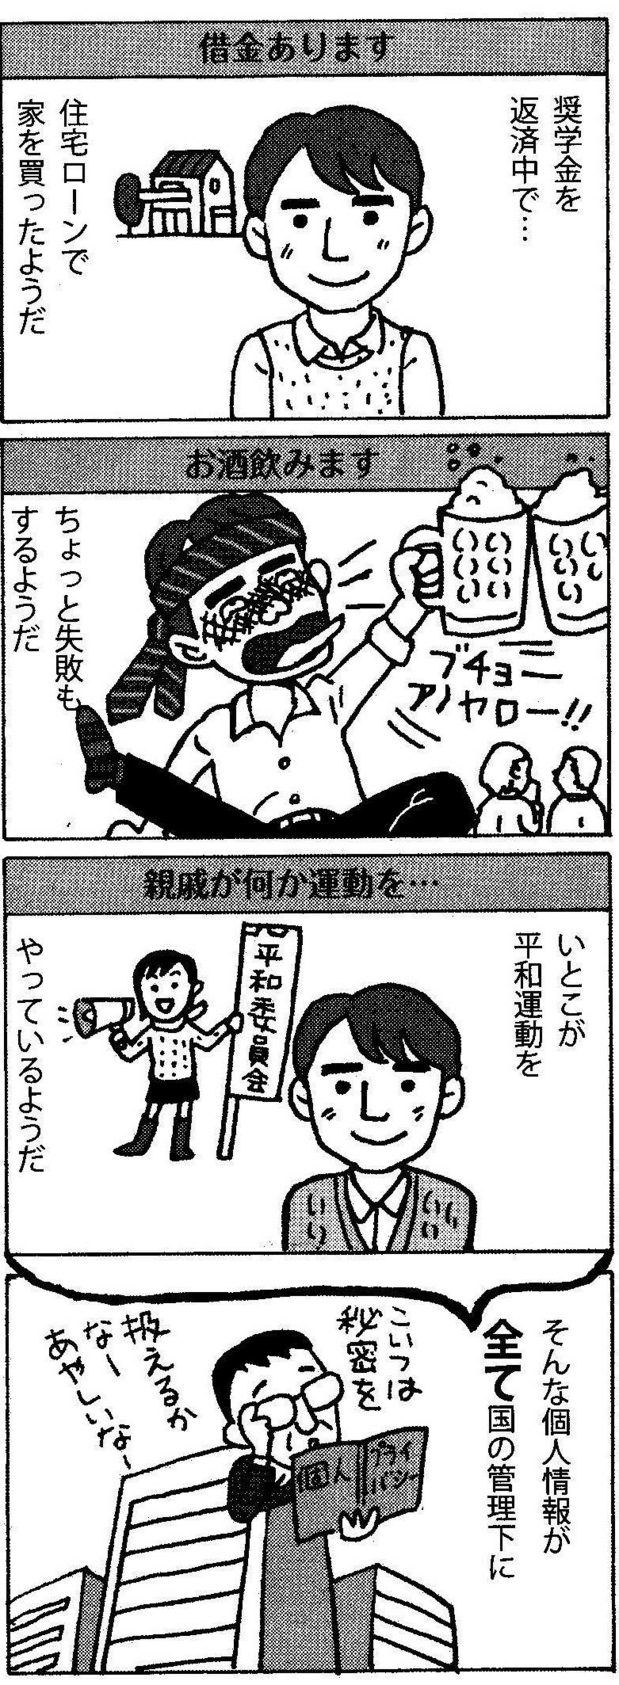 借金あります
奨学金を
返済中で…
住宅ローンで
家を買ったようだ
お酒飲みます
ブチョー
アノヤロー!!
ちょっと失敗も
するようだ
親戚が何か運動を…
いとこが
平和運動を
平和委員会
やっているようだ
そんな個人情報が
全て国の管理下に
こいつは
秘密を
扱えるか
なー
あやしいなー
個人
プライ
バシー